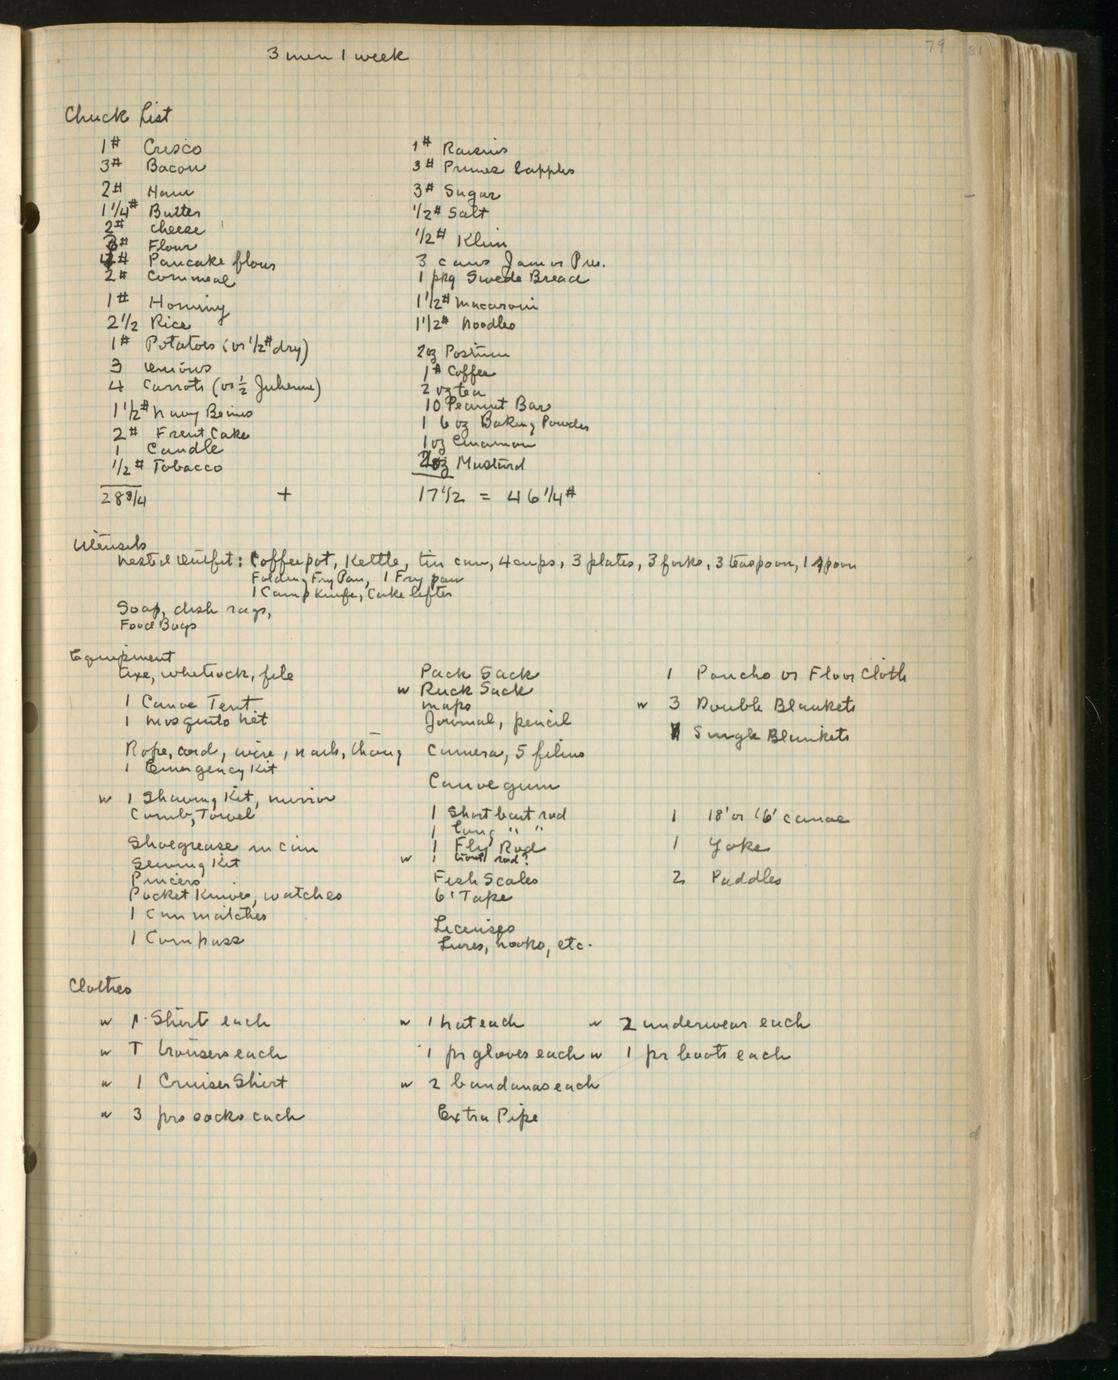 79
81
3 men 1 week
Chuck List
1# Crisco
3# Bacon
2# Ham
1 1/4# Butter
2# Cheese
3# Flour
4# Pancake flour
2# Cornmeal
1# Hominy
2 1/2 Rice
1# Potatoes (or 1/2# dry)
3 onions
4 Carrots (or 1/2 Julienne)
1 1/2# Navy Beans
2# Fruit Cake
1 Candle
1/2 # Tobacco
28 3/4 +
1# Raisins
3# Prunes & apples
3# Sugar
1/2# Salt
1/2# Klim
3 cans Jam or Pres.
1 pkg Swede Bread
1 1/2# Macaroni
1 1/2# Noodles
2oz Postum
1# Coffee
2 oz tea
10 Peanut Bar
1 6 oz Baking Powder
1oz Cinamon
2oz Mustard
17 1/2 = 46 1/4#
Utensils
Nested Outfit: Coffeepot, Kettle, tin can, 4 cups, 3 plates, 3 forks, 3 teaspoon, 1 spoon
Folding Fry Pan, 1 Fry pan
1 Camp Knife, Cake lifter
Soap, dish rags,
Food Bags
Equipment
Axe, whetrock, file
1 Canoe Tent
1 mosquito net
Rope, cord, wire, nails, thong
1 Emergency Kit
w 1 Shaving Kit, mirror
Comb, Towel
Shoegrease in can
Sewing Kit
Pincers
Pocket Knives, watches
1 Can matches
1 Compass
Pack Sack
w Ruck Sack
maps
Journal, pencil
Camera, 5 films
Canoe gum
1 Short bait rod
1 long " "
1 Fly Rod
w 1 trout rod?
Fish Scales
6' Tape
Licenses
Lures, hooks, etc.
1 Poncho or Floor Cloth
w 3 Double Blankets
Single Blankets
1 18' or 16' canoe
1 Yoke
2 Paddles
Clothes
w 1 Shirt each
w 1 trousers each
w 1 Cruiser Shirt
w 3 prs socks each
w 1 hat each
1 pr gloves each
w 2 bandanas each
Extra Pipe
w 2 underwear each
w 1 pr boots each